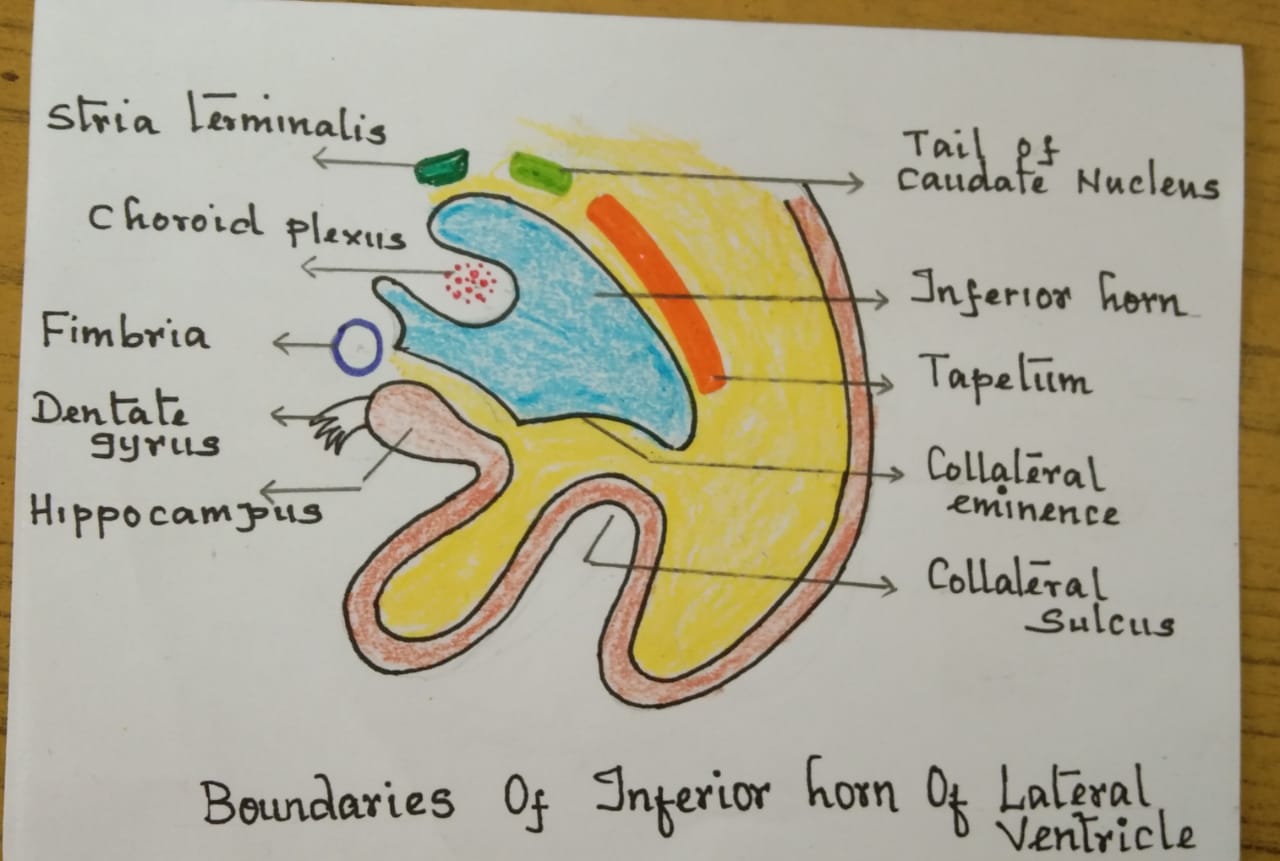 Stria terminalis
Choroid plexus
Fimbria
Dentate
gyrus
Hippocampus
Tail of
Caudate Nucleus
Inferior horn
Tapetum
Collateral
eminence
Collateral
Sulcus
Boundaries Of Inferior horn Of Lateral
Ventricle